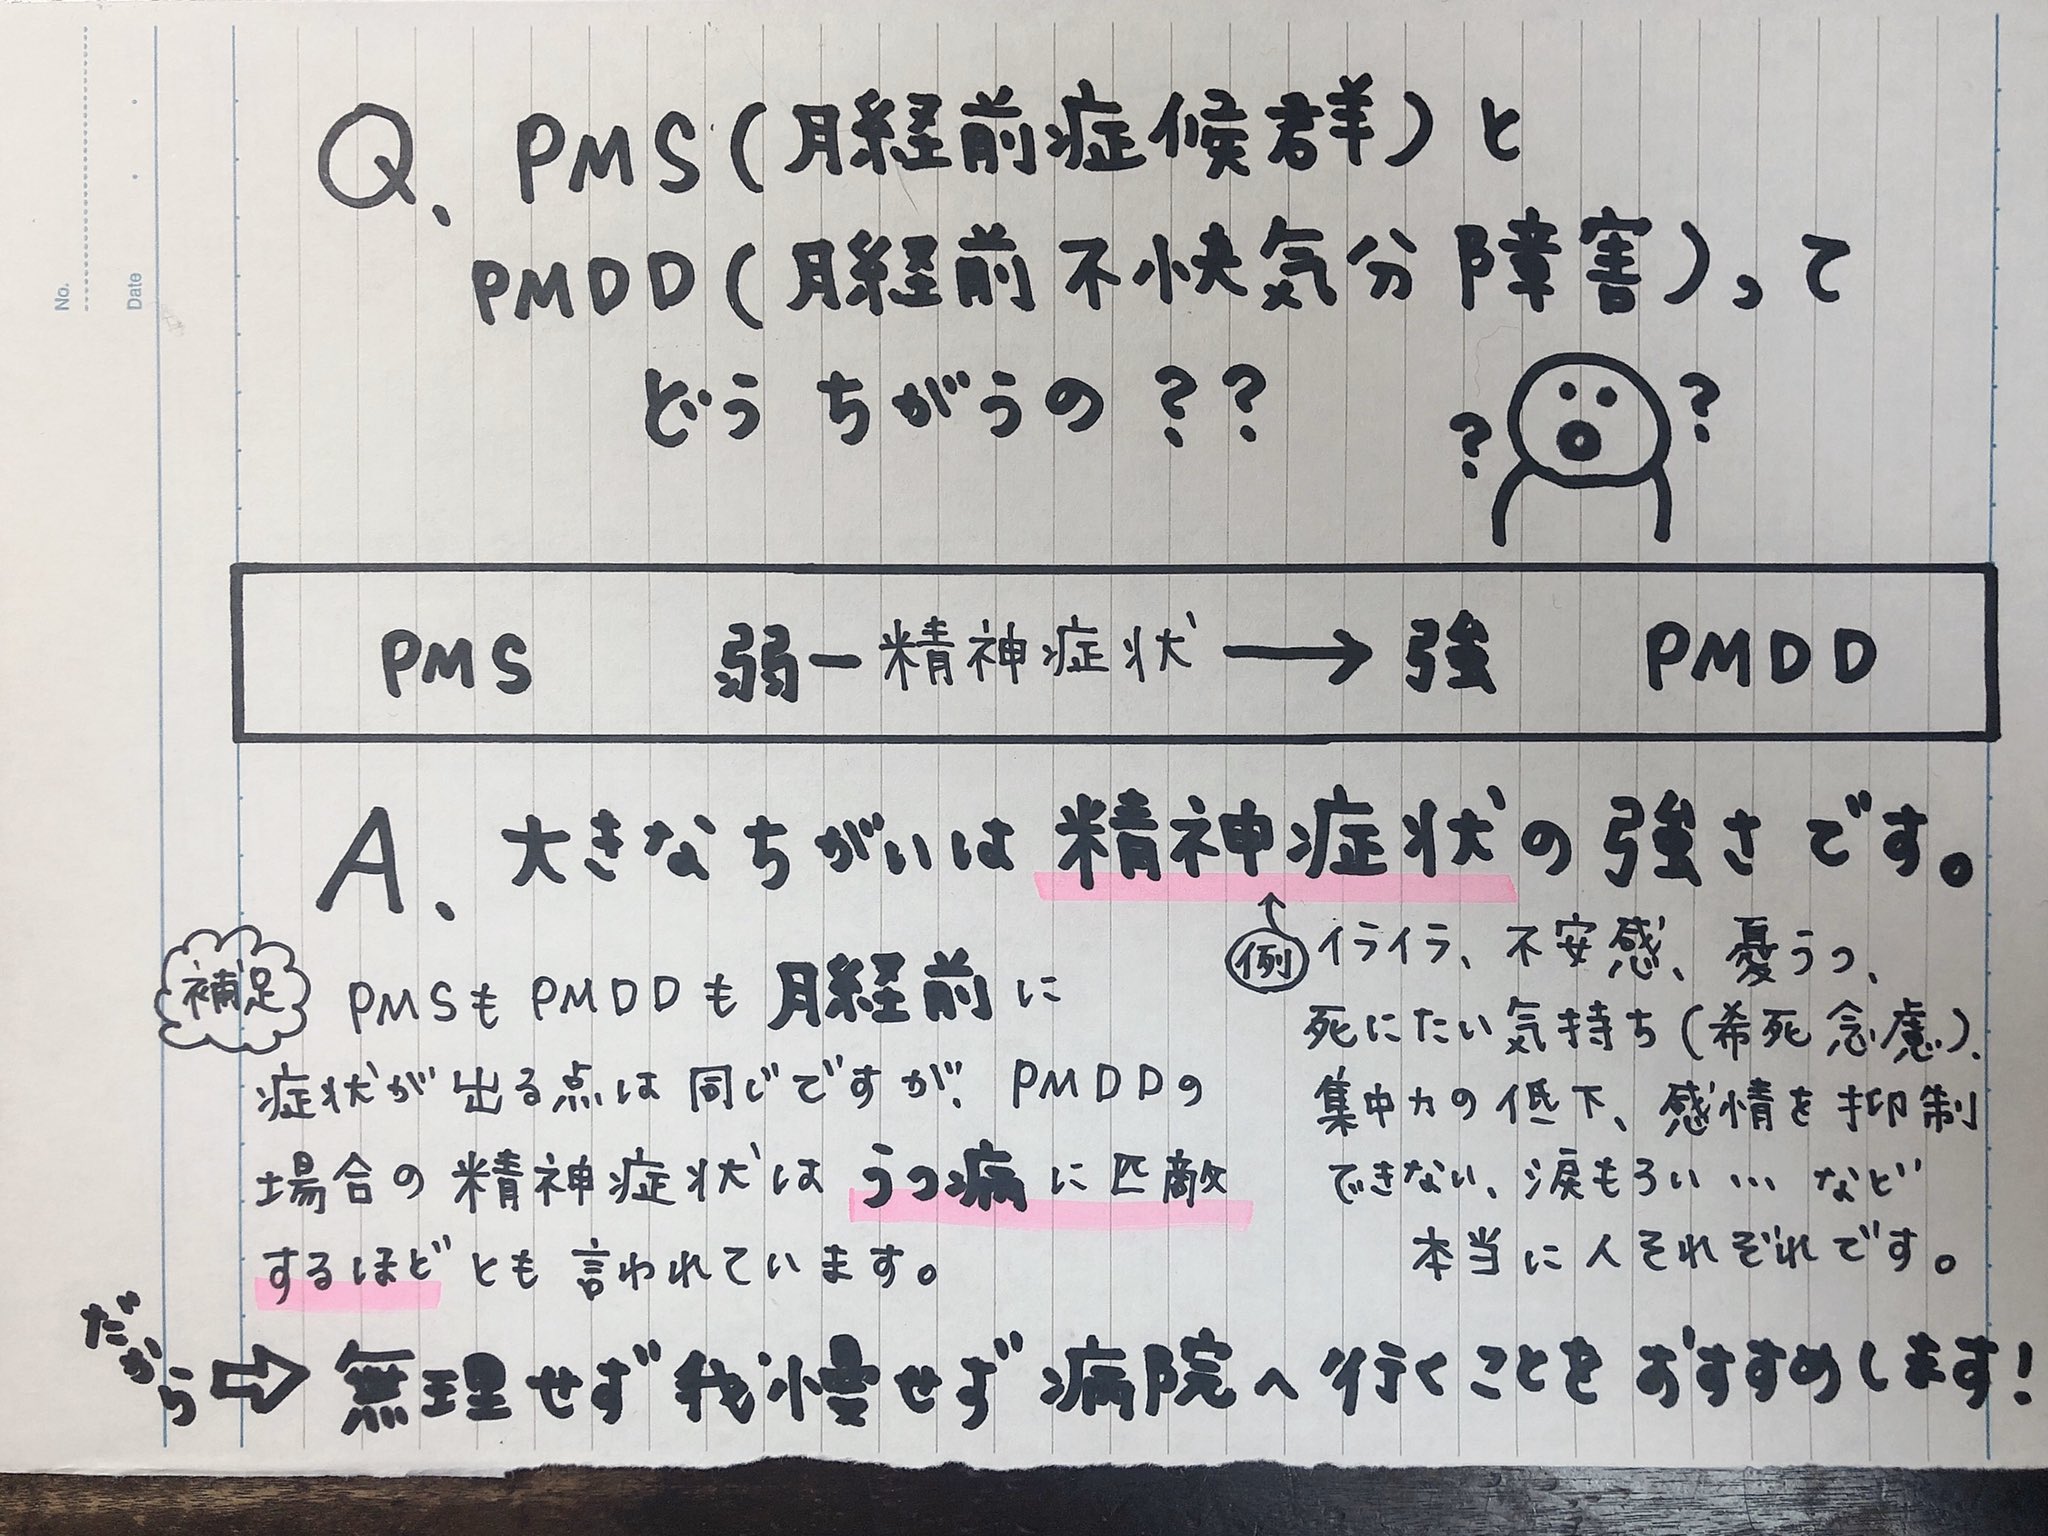 No.
Date
Q、PMS(月経前症候群)と
PMDD(月経前不快気分障害)って
どうちがうの??
? ?
PMS 弱ー精神症状→強 PMDD
A、大きなちがいは精神症状の強さです。
補足
PMSもPMDDも月経前に
症状が出る点は同じですが、PMDDの
場合の精神症状はうつ病に匹敵
するほどとも言われています。
↑
例 イライラ、不安感、憂うつ、
死にたい気持ち(希死念慮)、
集中力の低下、感情を抑制
できない、涙もろい…など
本当に人それぞれです。
だから
⇨無理せず我慢せず病院へ行くことをおすすめします!